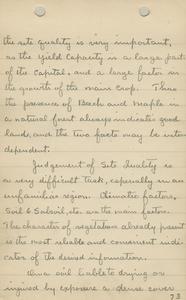 the site quality is very important,
as the yield capacity is a large part
of the capital, and a large factor in
the growth of the main crop. Thus
the presence of Beech and Maple in
a natural forest always indicates good
land, and the two facts may be inter-
dependent.
Judgement of Site Quality is
a very difficult task, especially in an
unfamiliar region. Climatic factors,
Soil & Subsoil, etc. are the main factors.
The character of vegetation already present
is the most reliable and convenient indi-
cator of the desired information.
On a soil liable to drying or
injured by exposure a dense cover